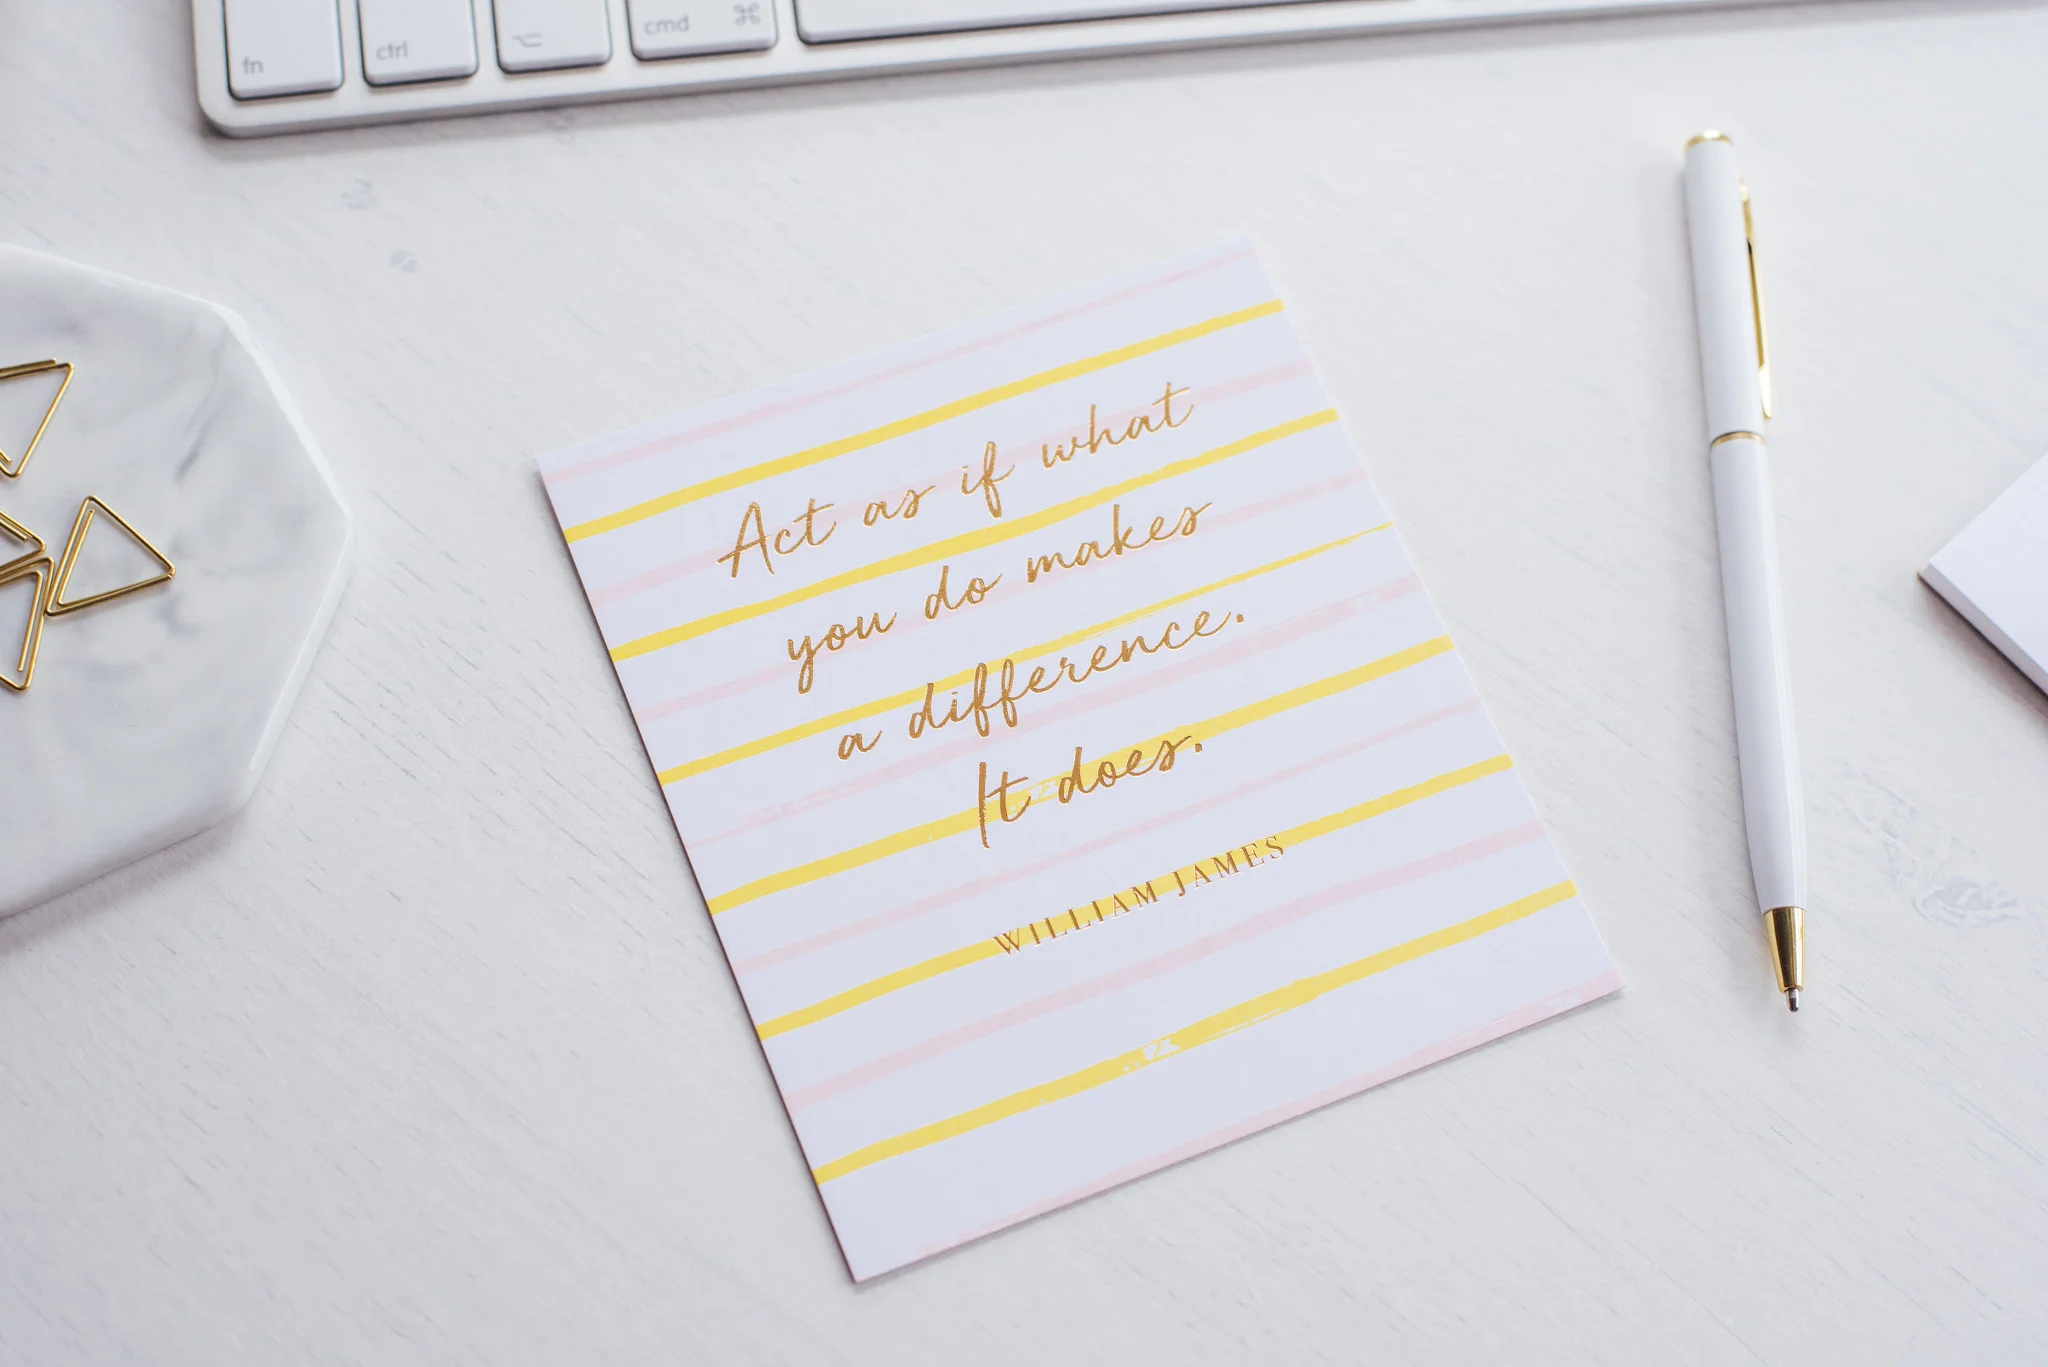 fn ctrl ⌥ cmd ⌘
Act as if what
you do makes
a difference.
It does.
WILLIAM JAMES